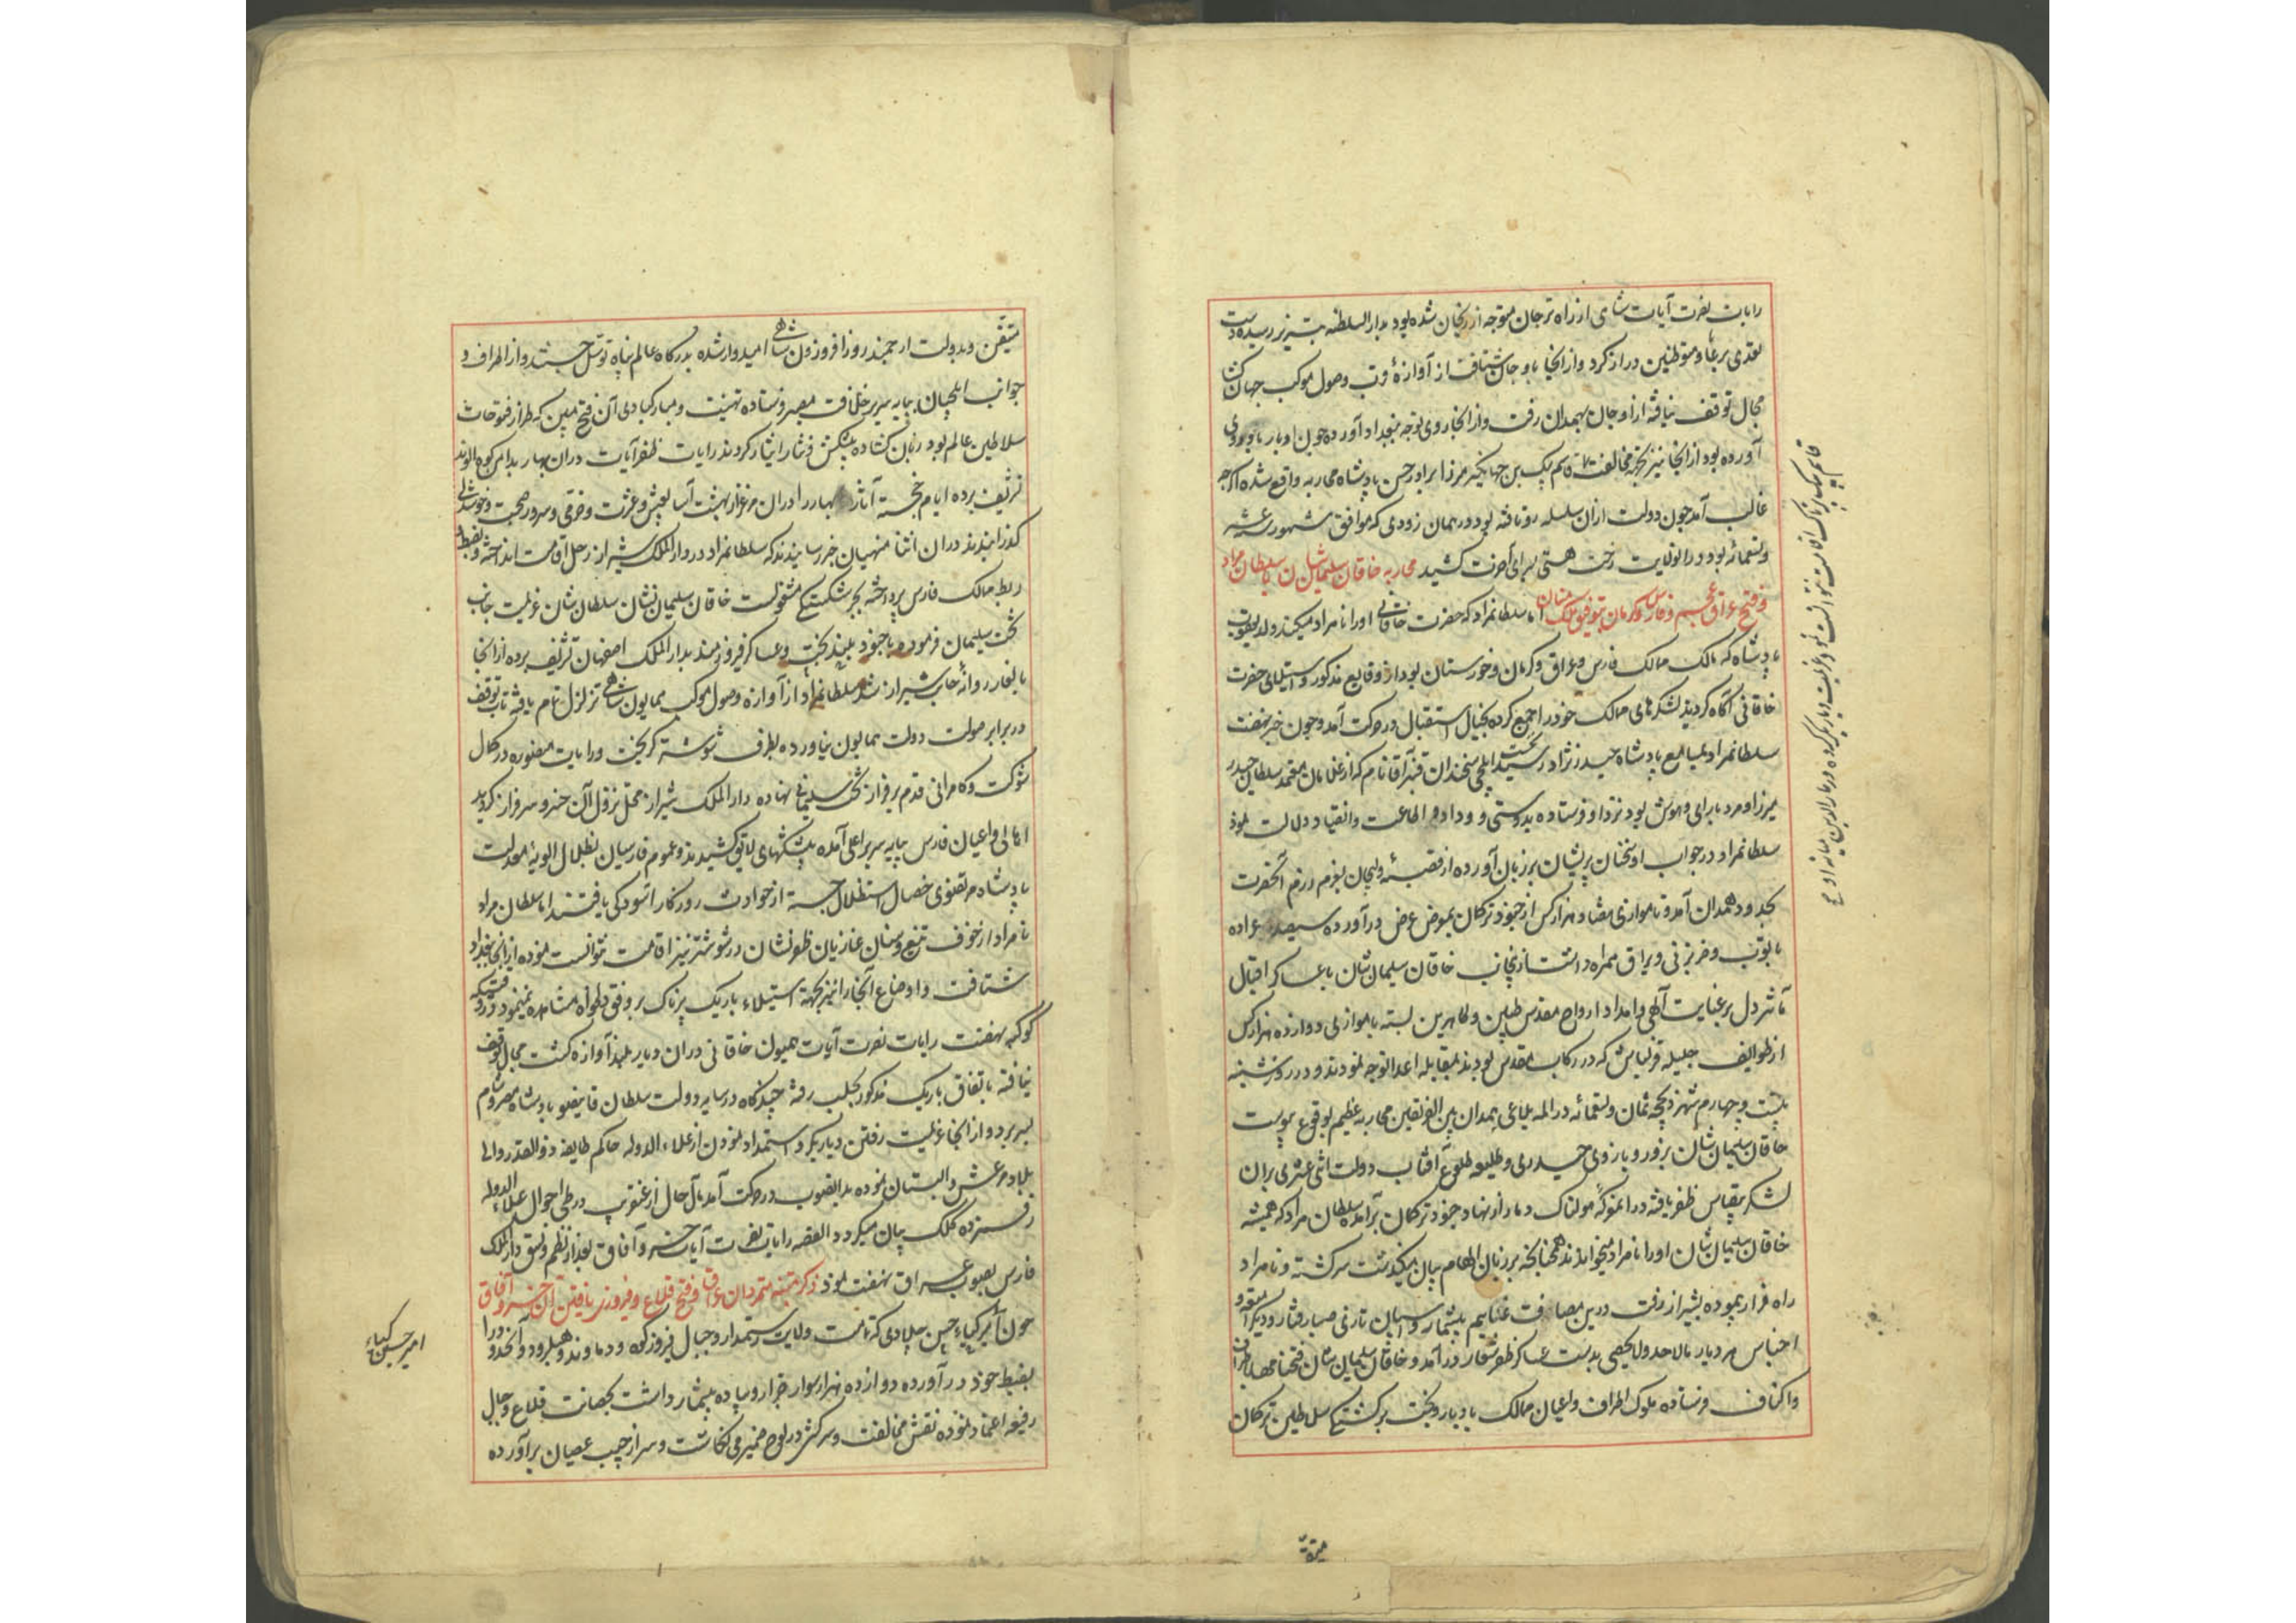 رایات نصرت آیات شاهی از راه ترجان متوجه ارزنجان شده بود بدار السلطنه تبریز رسیده دست
تعدی برعایا و متوطنین دراز کرد و از انجا باوجان شتافت از آوازهٔ قرب وصول موکب جهان کشا
مجال توقف نیافته از اوجان بهمدان رفت و از انجا روی توجه ببغداد آورده چون ادبار باو روی
آورده بود از انجا نیز بجهة مخالفت قاسم بیک بن جهانگیر میرزا برادر حسن پادشاه محاربه واقع شده اگرچه
غالب آمد چون دولت ازان سلسله رو تافته بود در همان زودی که موافق شهور سنه عشر
وتسعمائه بود در انولایت رخت هستی بسرای آخرت کشید محاربه خاقان سلیمان شان با سلطان مراد
وفتح عراق عجم و فارس و کرمان بتوفیق ملک منان اما سلطانمراد که حضرت خاقانی اورا نامراد میگفتند ولد یعقوب
پادشاه که مالک ممالک فارس و عراق و کرمان و خوزستان بود از وقایع مذکور و استیلای حضرت
خاقانی آگاه گردید لشکرهای ممالک خود را جمع کرده بخیال استقبال در حرکت آمد و چون خبر نهضت
سلطانمراد بمسامع پادشاه حیدر نژاد رسید نخست ایلچی سخندان قنبر آقا نام که از غلامان معتمد سلطان حیدر
میرزا و مرد با رای و هوش بود نزد او فرستاده بدوستی و وداد و اطاعت و انقیاد دلالت نمود
سلطانمراد در جواب او سخنان پریشان بر زبان آورده از قصبه دلیجان بعزم رزم آنحضرت
بحدود همدان آمد و تا موازی هفتاد هزار کس از جنود ترکمان بمعرض عرض در آورده سیصد عراده
با توپ و ضربزنی و یراق همراه داشت از ینجانب خاقان سلیمان شان با عساکر اقبال
مآثر دل بر عنایت الهی و امداد ارواح مقدس طیبین و طاهرین بسته با موازی دوازده هزار کس
از طوایف جلیله قزلباش که در رکاب مقدس بودند بمقابله اعدا توجه نمودند و در روز شنبه
بیست و چهارم شهر ذیحجه ثمان و تسعمائه در المه بلاغی همدان بین الفریقین محاربه عظیم بوقوع پیوست
خاقان سلیمان شان بزور و بازوی حیدری و طلیعه طلوع آفتاب دولت اثنی عشری بران
لشکر بیقیاس ظفر یافته در انمعرکه هولناک دمار از نهاد جنود ترکمان بر آمده سلطان مراد که همیشه
خاقان سلیمان شان اورا نامراد میخواندند همچنانکه بر زبان الهام بیان میگذشت سرگشته و نامراد
راه فرار پیموده بشیراز رفت درین مصاف غنایم بیشمار و اسپان تازی صبا رفتار و دیگر امتعه و
اجناس هر دیار بالاحد ولایحصی بدست عساکر ظفر شعار در آمد و خاقان سلیمان شان فتحنامها باطراف
واکناف فرستاده ملوک اطراف و اعیان ممالک بادبار و بخت برگشتگی سلاطین ترکمان
قاسم بیک پرناک اقامت نتوانست نمود و عزیمت دیار بکر کرده در دیار بکر میانه او و
متیقن
متیقن و بدولت ارجمند روز افزون شاهی امیدوار شده بدرگاه عالم پناه توسل جستند و از اطراف و
جوانب ایلچیان بپایه سریر خلافت مصیر فرستاده تهنیت و مبارکبادی آن فتح مبین که طراز فتوحات
سلاطین عالم بود زبان گشاده پیشکش و نثار ایثار کردند رایات ظفر آیات دران بهار بدامن کوه الوند
تشریف برده ایام خجسته آثار بهار را دران مرغزار بهشت آسا بعیش و عشرت و خرمی و سرور و صحبت و خوشدلی
گذرانیدند دران اثنا منهیان خبر رسانیدند که سلطانمراد در دار الملک شیراز رحل اقامت انداخته و بضبط
ربط ممالک فارس پرداخته بجبر شکستگی مشغولست خاقان سلیمان نشان سلطان شان عزیمت جانب
تخت سلیمان فرموده با جنود بلند بخت و عساکر فیروزمند بدار الملک اصفهان تشریف برده از انجا
بایلغار روانه جانب شیراز شد سلطانمراد از آوازه وصول موکب همایون شاهی تزلزل تمام یافته تاب توقف
در برابر صولت دولت همایون نیاورده بطرف شوشتر گریخت و رایات منصوره در کمال
شوکت و کامرانی قدم بر فراز تخت سلیمانی نهاده دار الملک شیراز محل نزول آن خسرو سرفراز گردید
اهالی و اعیان فارس بپایه سریر اعلی آمده پیشکشهای لایق کشیدند و عموم فارسیان بظلال الویه معدلت
پادشاه مرتضوی خصال استظلال جسته از حوادث روزگار آسودگی یافتند اما سلطان مراد
نامراد از خوف تیغ و سنان غازیان ظفر نشان در شوشتر نیز اقامت نتوانست نموده از انجا ببغداد
شتافت و اوضاع آنجا را نیز بجهة استیلاء باریک پرناک بر وفق دلخواه مشاهده ننمود و در وقتیکه
کوکبه نهضت رایات نصرت آیات همیون خاقانی دران دیار بلند آوازه گشت مجال توقف
نیافته باتفاق باریک مذکور بحلب رفته چندگاه در سایه دولت سلطان قانیصو پادشاه مصر و شام
بسر برد و از انجا عزیمت رفتن دیار بکر و استمداد نمودن از علاء الدوله حاکم طایفه ذوالقدر و والی
بلاد مرعش و البستان نموده بدانصوب در حرکت آمد مآل حال او عنقریب در طی احوال علاء الدوله
رقمزده کلک بیان میگردد القصه رایات نصرت آیات خسرو آفاق بعد از نظم و نسق دار الملک
فارس بصوب عراق نهضت نمود ذکر تنبیه متمردان عراق و فتح قلاع و فیروزی یافتن آن خسرو آفاق
چون امیر کیاء حسین چلاوی که تمامت ولایت رستمدار و جبال فیروزکوه و دماوند و هبلرود و آنحدود را
بضبط خود در آورده دوازده هزار سوار جرار و پیاده بیشمار داشت بحصانت قلاع و جبال
رفیعه اعتماد نموده نقش مخالفت و سرکشی در لوح ضمیر می نگاشت و سر از جیب عصیان برآورده
امیر حسین کیاء